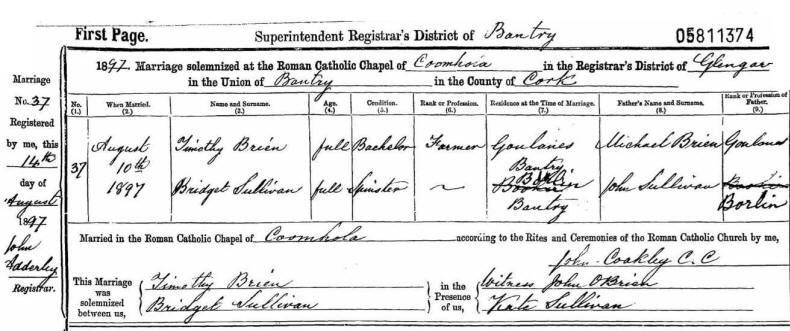 First Page. Superintendent Registrar's District of Bantry 05811374
1897 Marriage solemnized at the Roman Catholic Chapel of Coomhola in the Registrar's District of Glengar
in the Union of Bantry in the County of Cork
Marriage
No. 37
Registered
by me, this
14th
day of
August
1897
John
Adderley
Registrar.
No. (1.) When Married. (2.) Name and Surname. (3.) Age. (4.) Condition. (5.) Rank or Profession. (6.) Residence at the Time of Marriage. (7.) Father's Name and Surname. (8.) Rank or Profession of Father. (9.)
37 August 10th 1897
Timothy Brien full Bachelor Farmer Goulanes Bantry Michael Brien Goulanes
Bridget Sullivan full Spinster ~ Borlin Bantry John Sullivan Borlin
Married in the Roman Catholic Chapel of Coomhola according to the Rites and Ceremonies of the Roman Catholic Church by me,
John Coakley C.C
This Marriage was solemnized between us,
Timothy Brien
Bridget Sullivan
in the Presence of us,
Witness John OBrien
Kate Sullivan